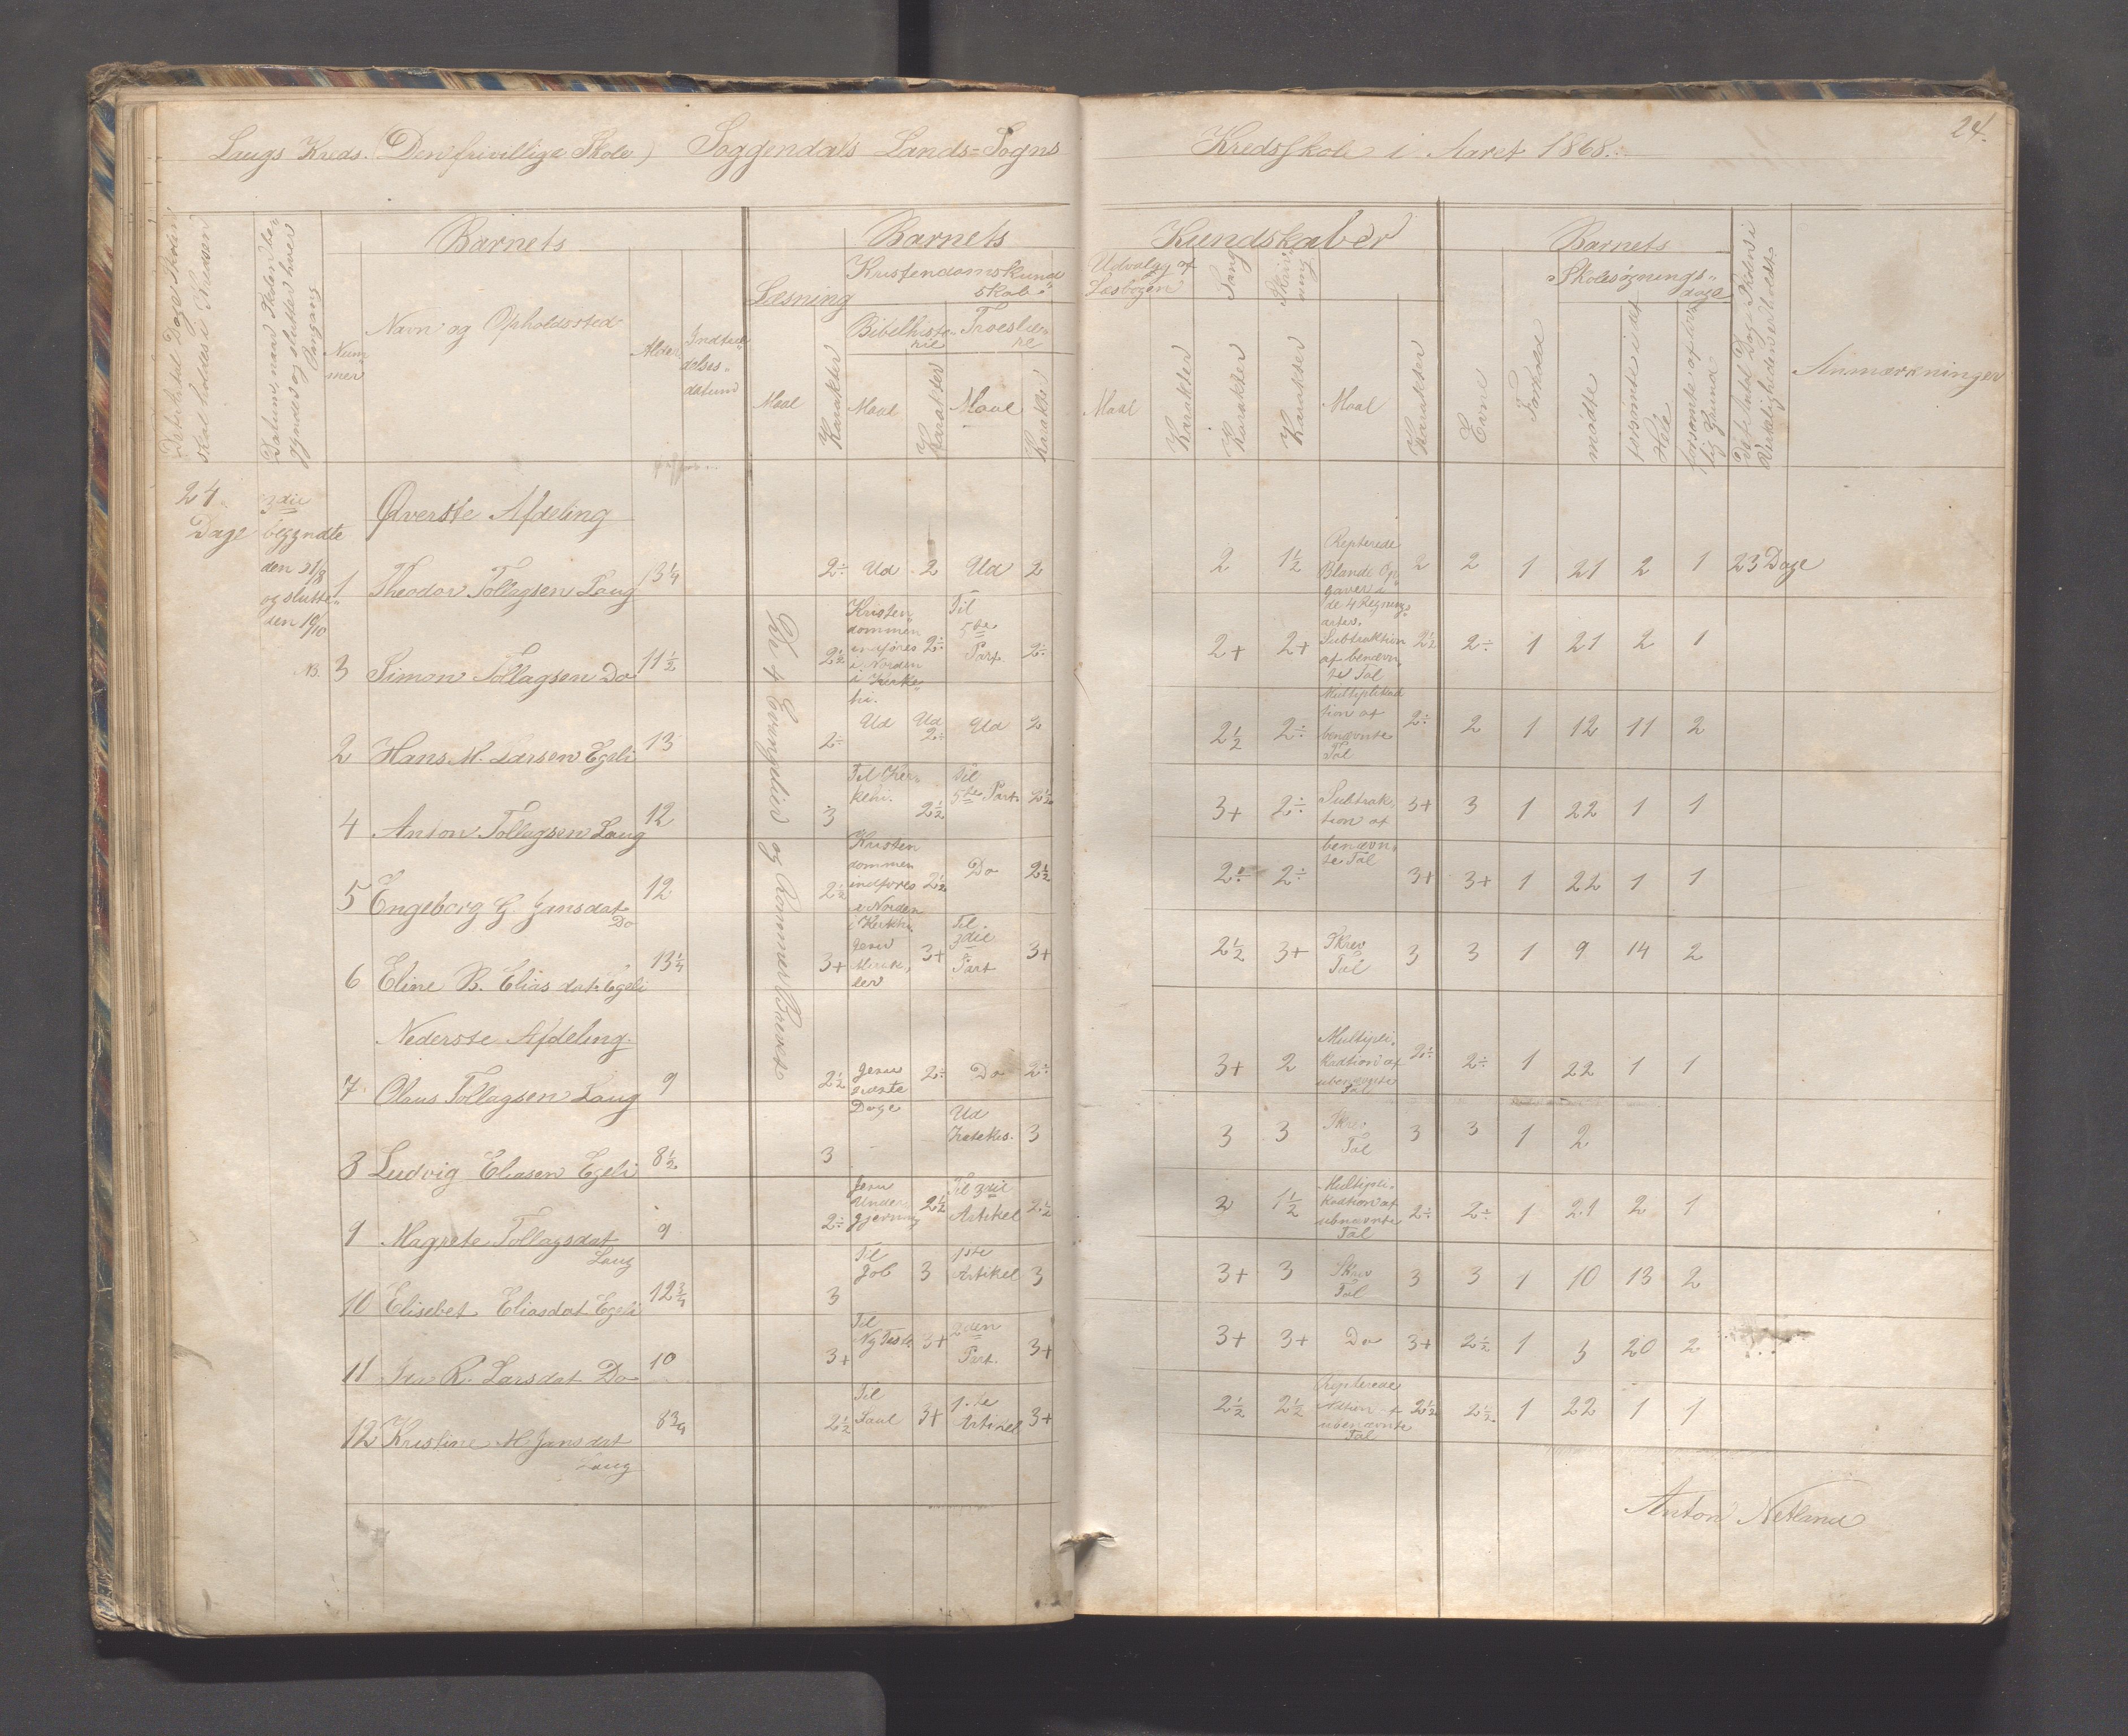 Laugs Kreds. (Den frivillige Skole) Soggendals Lands-Sogns Kredsskole i Aaret 1868.
24.
Det Antal Dage Skolen skal holdes i Kredsen
Datum, naar Skolen begyndes og slutter hver Gangang
Barnets
Num mer
Navn og Opholdssted
Alder
Indtrædelses-datum
Barnets Kundskaber
Læsning
Maal
Karakter
Kristendomskundskab
Bibelhistorie
Maal
Karakter
Troeslære
Maal
Karakter
Udvalgg af Læsbogen
Maal
Karakter
Sang
Karakter
Skrivning
Karakter
Maal
Karakter
Evne
Forhold
Barnets
Skolesøgningsdage
mødte
forsømte i det Hele
forsømte af lovlig Grund
Det Antal Dage Skolen i Virkeligheden er holdt
Anmærkninger
24 Dage
3die begyndte den 21/8 og sluttede den 10/10
De 4 Evangelier og Rommerbrevet
Øverste Afdeling
1 Theodor Tollagsen Laug 13 1/4 2÷ Ud 2 Ud 2 2 1 1/2 Repterede Blande Opgaver i de 4 Regningsarter. 2 2 1 21 2 1 23 Dage
NB. 3 Simon Tollagsen Do 11 1/2 2 1/2 Kristendommen indføres i Norden i Kirkehi. 2÷ Til 5te Part. 2÷ 2+ 2+ Subtraktion af benævnte Tal 2 1/2 2÷ 1 21 2 1
2 Hans M. Larsen Egeli 13 2÷ Ud Ud 2÷ Ud 2 2 1/2 2÷ Multiplikadtion af benævnte Tal 2÷ 2 1 12 11 2
4 Anton Tollagsen Laug 12 3 Til Kirkehi. 2 1/2 Til 5te Part. 2 1/2 3+ 2÷ Subtraktion af benævnte Tal 3+ 3 1 22 1 1
5 Engeborg G Jansdat Do 12 2 1/2 Kristendommen indføres i Norden i Kirkhi. 2 1/2 Do 2 1/2 2÷ 2÷ 3+ 3+ 1 22 1 1
6 Eline B. Elias dat. Egeli 13 1/4 3+ Jesu Mirakler 3+ Til 3die Part 3+ 2 1/2 3+ Skrev Tal 3 3 1 9 14 2
Nederste Afdeling.
7 Olaus Tollagsen Laug 9 2 1/2 Jesu sidste Dage 2÷ Do 2÷ 3+ 2 Multiplikadtion af ubenævnte Tal 2÷ 2÷ 1 22 1 1
8 Ludvig Eliasen Egeli 8 1/2 3 - Ud Katekis. 3 3 3 Skrev Tal 3 3 1 2
9 Magrete Tollagsdat Laug 9 2÷ Jesu Undergjerning 2 1/2 Til 3die Artikel 2 1/2 2 1 1/2 Multiplikadtion af ubnævnte Tal 2÷ 2÷ 1 21 2 1
10 Elisebet Eliasdat Egeli 12 3/4 3 Til Job 3 1ste Artikel 3 3+ 3 Skrev Tal 3 3 1 10 13 2
11 R. Larsdat Do 10 3+ Til Ny Teste 3+ 2den Part. 3+ 3+ 3+ Do 3+ 2 1/2 1 3 20 2
12 Kristine M. Jansdat Laug 8 3/4 2 1/2 Til Saul 3+ 1.ste Artikel 3+ 2 1/2 2 1/2 Repterede Adtion ubenævnte Tal 2 1/2 2 1/2 1 22 1 1
Anton Netland